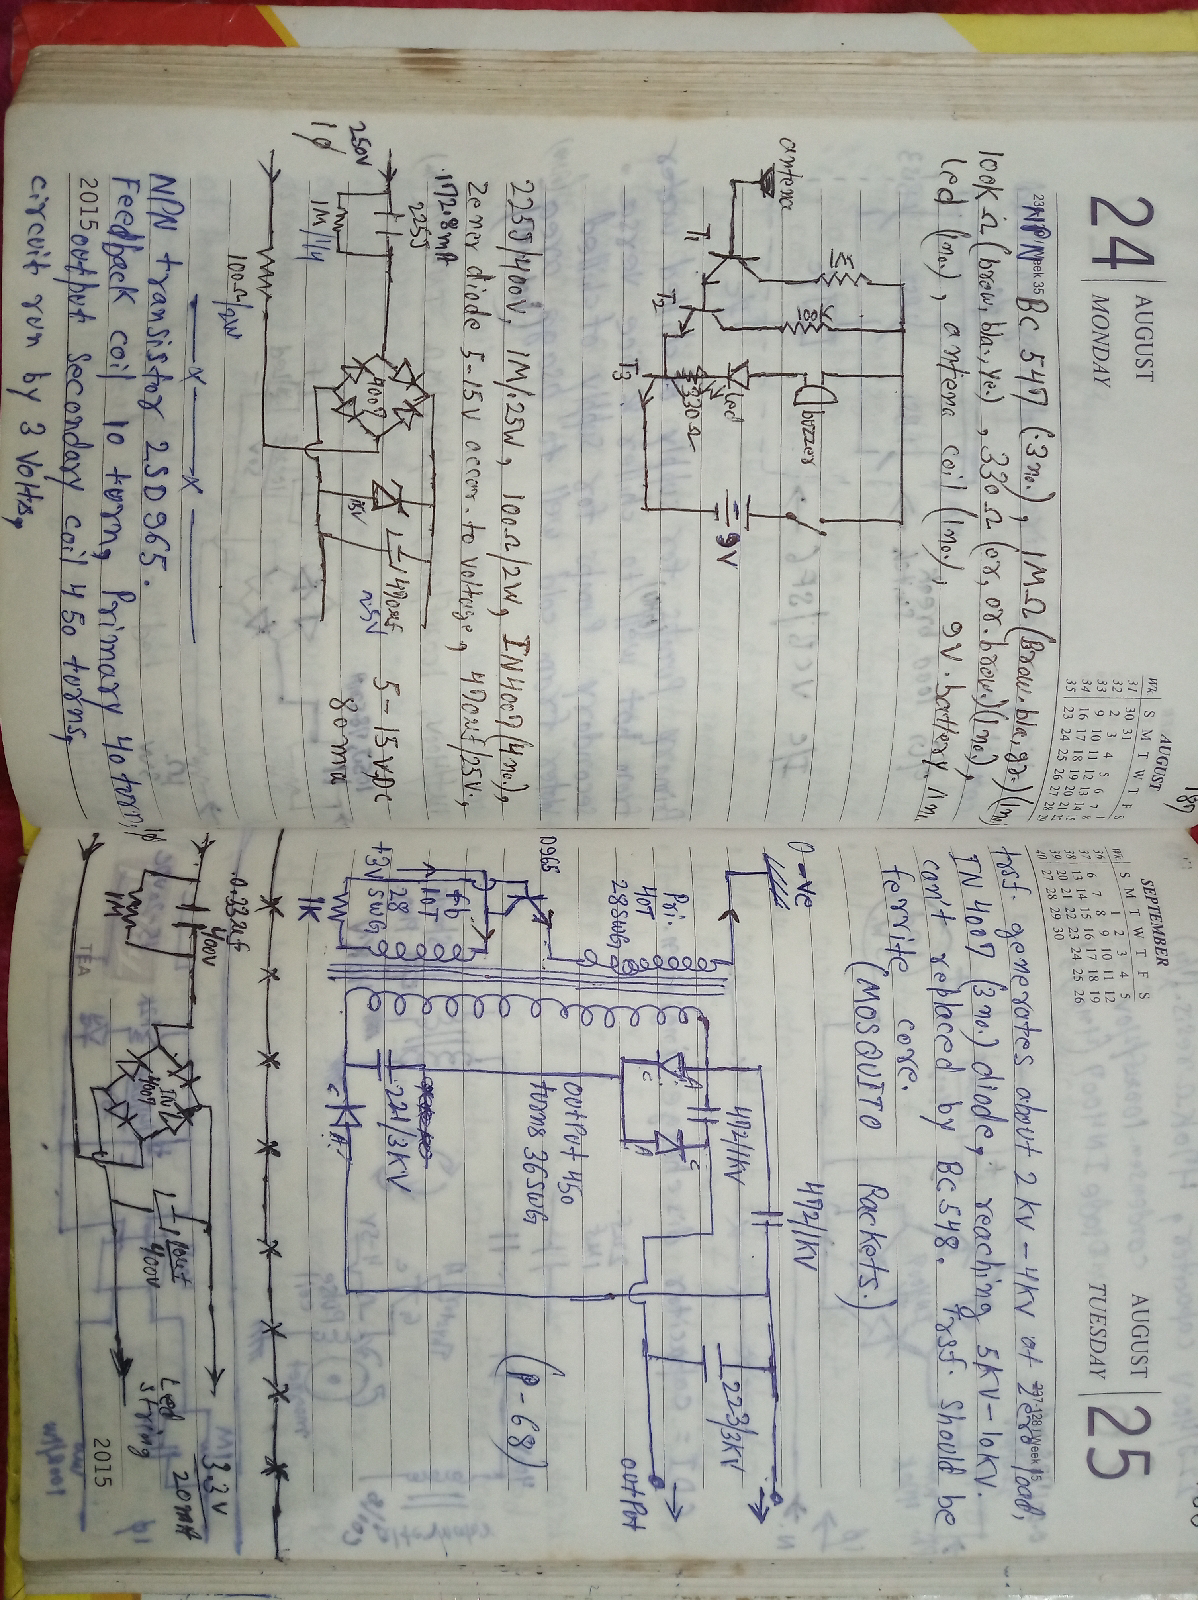 24
AUGUST
MONDAY
AUGUST
Wk S M T W T F
31 30 31
32 2 3 4 5 6 7
33 9 10 11 12 13 14
34 16 17 18 19 20 21
35 23 24 25 26 27 28
NPN BC 547 (3 no.), 1MΩ (Brow. bla, gr.) (1no)
100K Ω (brow, bla., ye.), 330 Ω (or, or. brow.) (1no.),
Led (1no.), antena coil (1no.), 9V. battery. 1no.
antena
T1
T2
T3
1M
Led
330Ω
buzzer
9V
225J/400V, 1M/.25W, 100Ω/2W, IN4007 (4no.),
Zener diode 5-15V accor. to voltage, 470uf/25V.,
.172.8mA
225J
250V
1φ
1M/1/4
100Ω/2W
4007
15V
470uf
25V
5-15VDC
80ma
NPN transistor 2SD965.
Feedback coil 10 turn, Primary 40 turn,
2015 output secondary coil 450 turns,
circuit run by 3 Volts,
SEPTEMBER
Wk S M T W T F S
36 1 2 3 4 5
37 6 7 8 9 10 11 12
38 13 14 15 16 17 18 19
39 20 21 22 23 24 25 26
40 27 28 29 30
AUGUST
TUESDAY
25
trsf. generates about 2 kv - 4kv at zero load,
IN 4007 (3 no.) diode, reaching 5kV-10kV.
can't replaced by BC548. trsf. should be
ferrite core.
(MOSQUITO Rackets.)
0-ve
Pri.
40T
28SWG
D965
fb
10T
28
SWG
+3V
1K
472/1KV
472/1KV
A
C
C
A
output 450
turns 36SWG
221/3KV
C
A
223/3KV
output
(P-68)
1φ
0.33uf
400V
1M
IN
4007
10uf
400V
3.3V
20mA
Led
string
2015